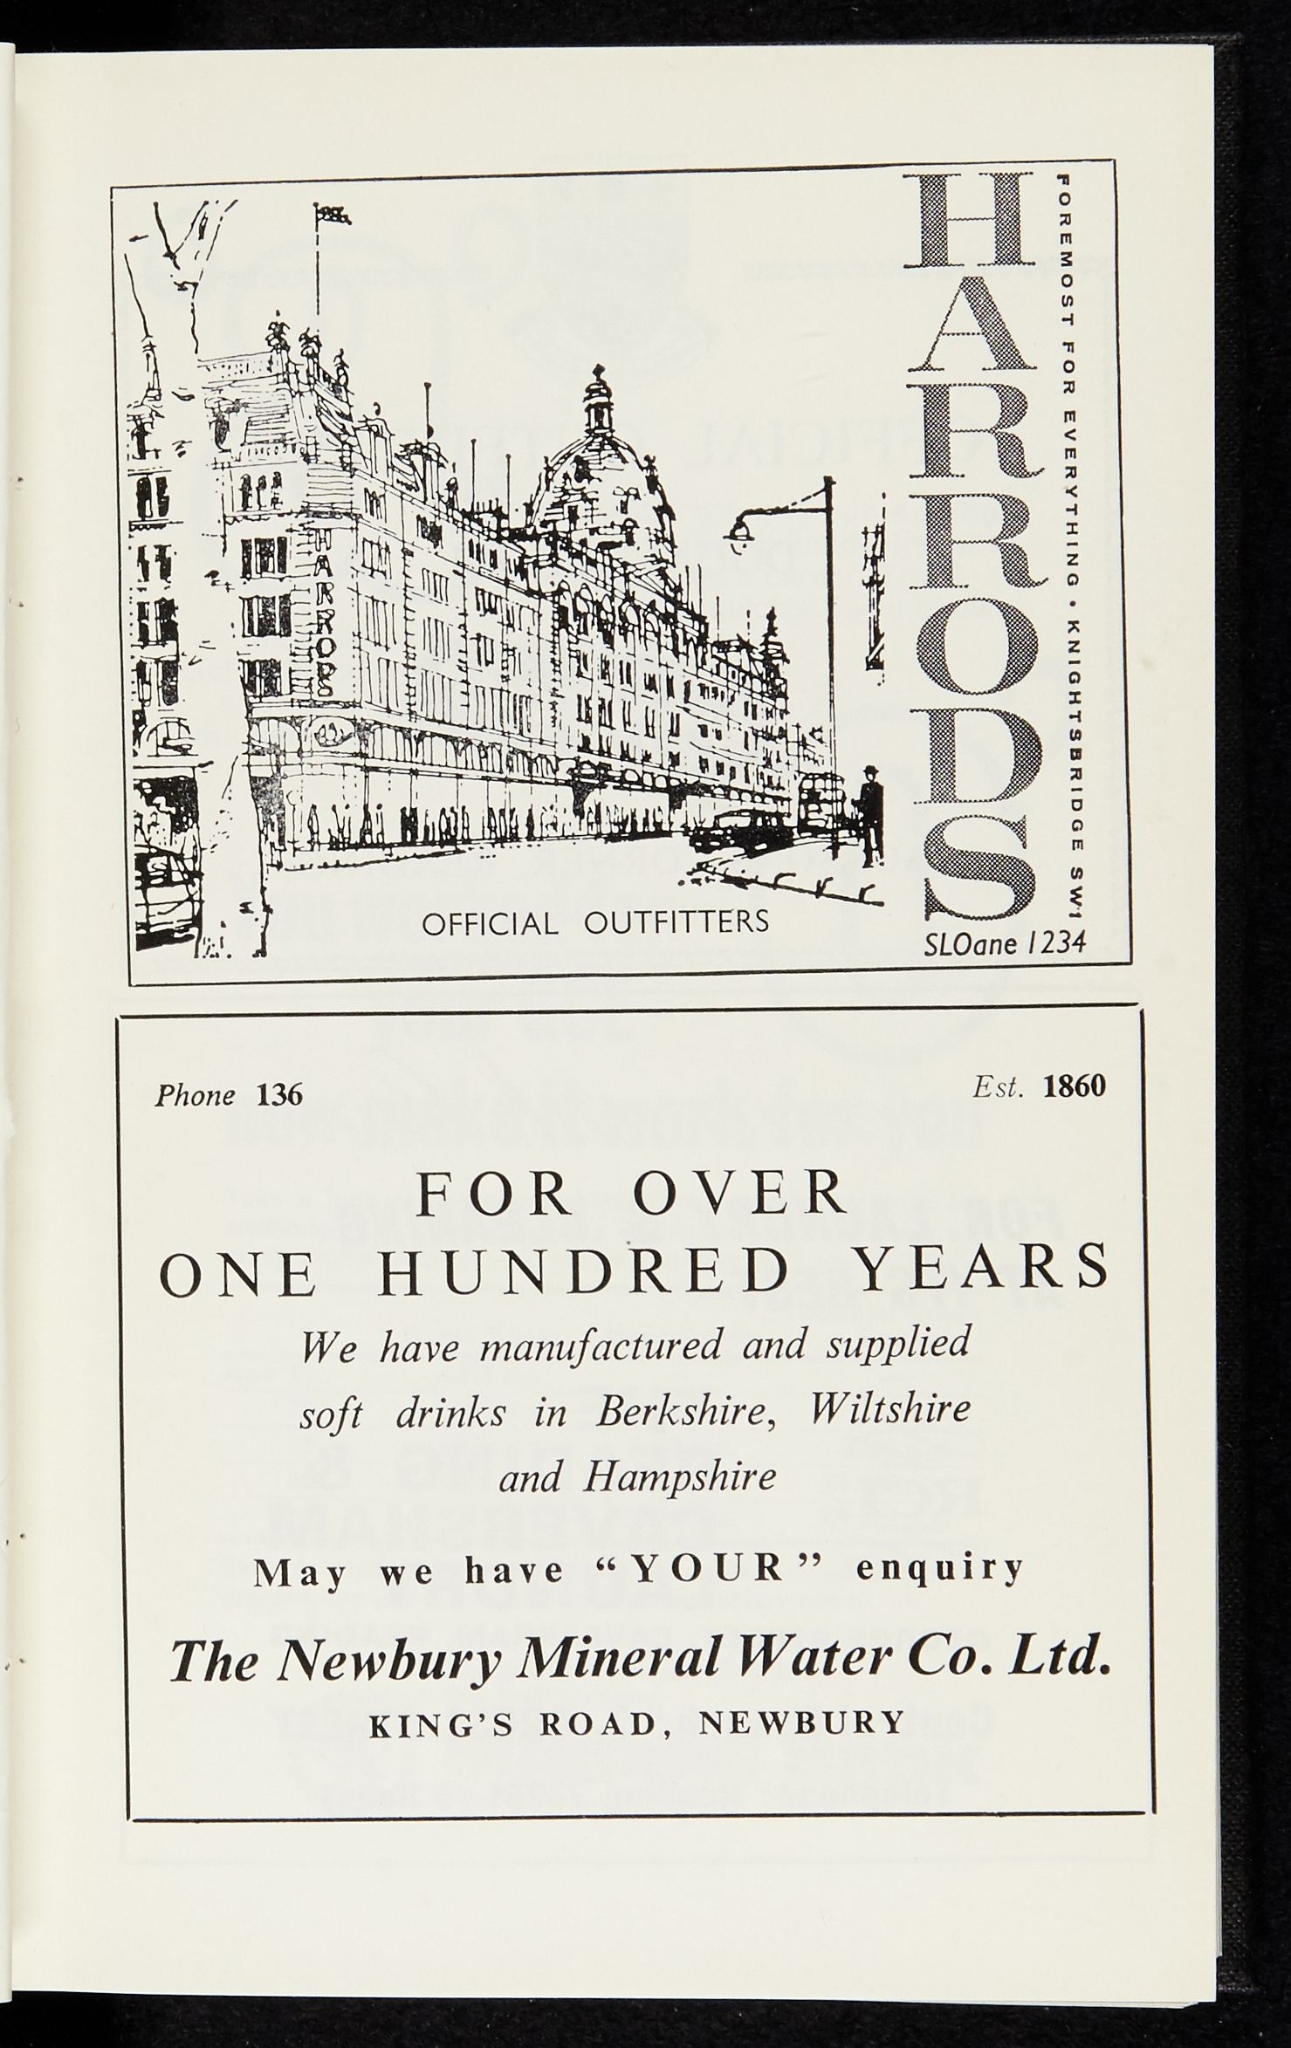 HARRODS
FOREMOST FOR EVERYTHING • KNIGHTSBRIDGE SW1
HARRODS
OFFICIAL OUTFITTERS
SLOane 1234
Phone 136
Est. 1860
FOR OVER
ONE HUNDRED YEARS
We have manufactured and supplied
soft drinks in Berkshire, Wiltshire
and Hampshire
May we have “YOUR” enquiry
The Newbury Mineral Water Co. Ltd.
KING’S ROAD, NEWBURY